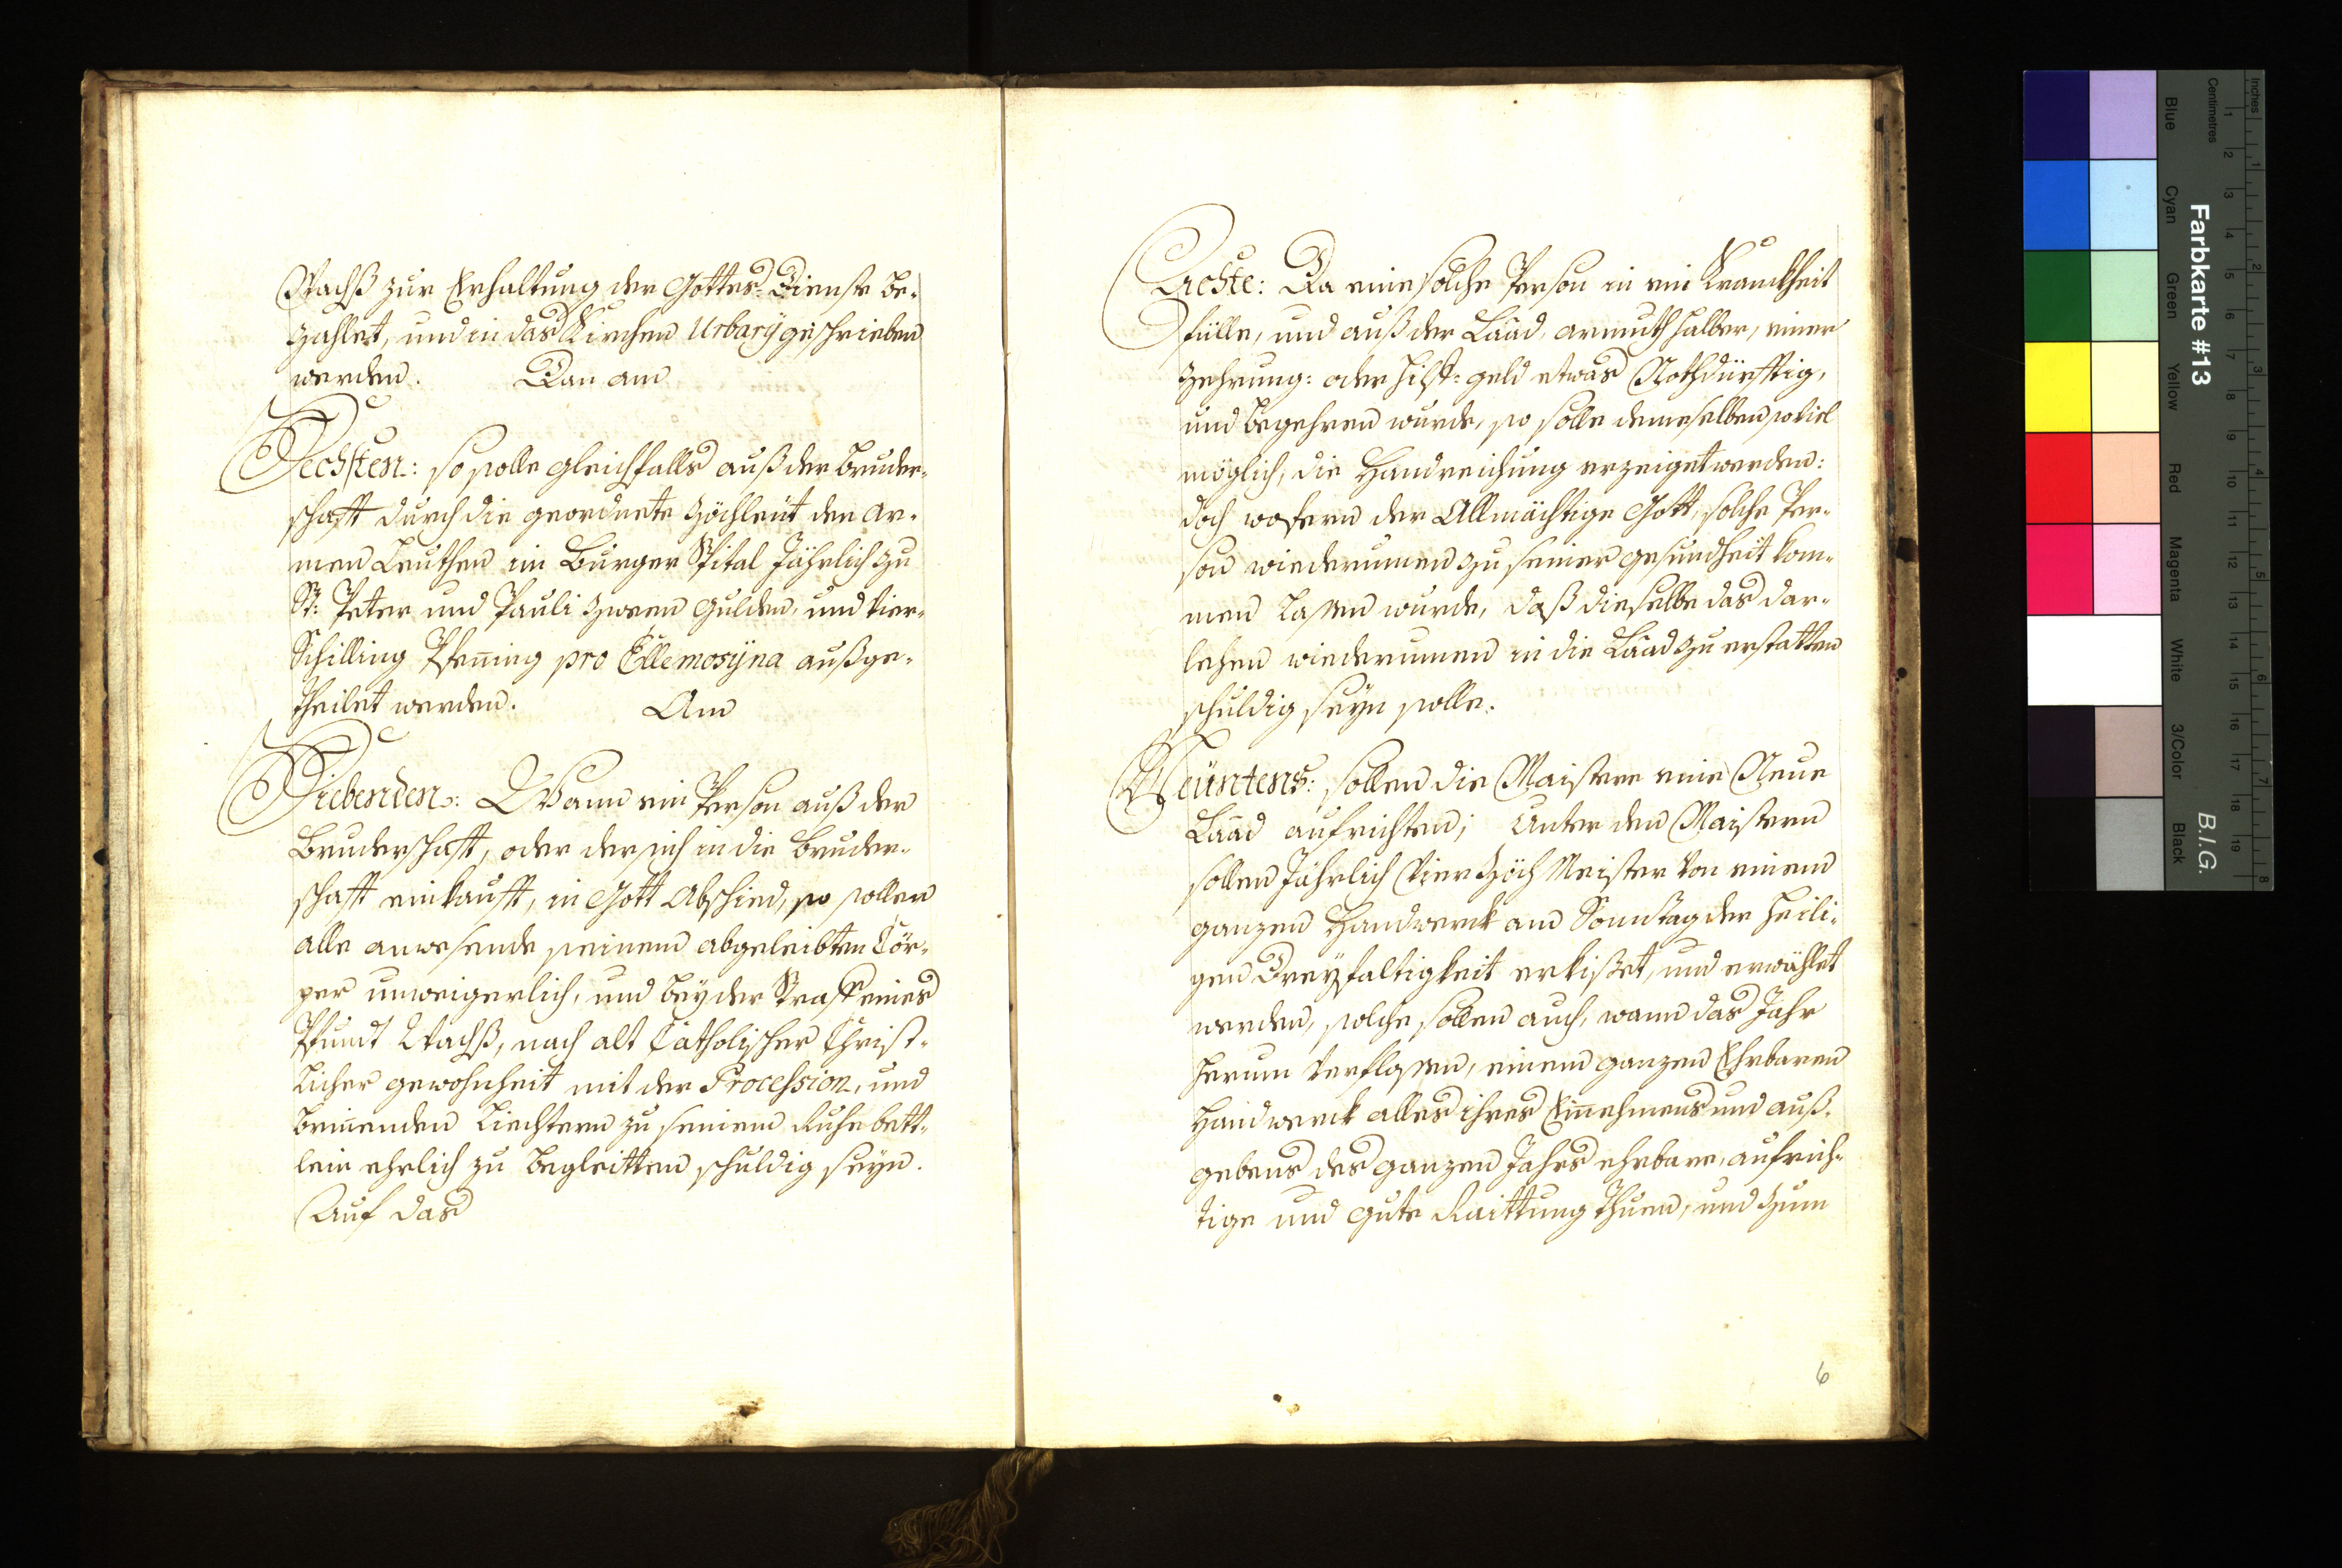 Wachß zur Erhaltung der Gottes-Dienste be-
zahlet, und in das Kirchen Urbarÿ geschrieben
werden. Dan am
Sechsten: so solle gleichfalls auß der Bruder-
schafft durch die geordnete Zöchleüt den Ar-
men Leuthen im Burger Spital Jährlich zu
St: Peter und Pauli zween Gulden, und vier
Schilling Pfening pro Ellemosÿna außge-
theilet werden. Am
Siebenden: Wann ein Person auß der
Bruderschafft, oder der sich in die Bruder-
schafft einkaufft, in Gott Abschied, so sollen
alle anwesende seinem abgeleibten Cör-
per unweigerlich, und beÿ der Straff eines
Pfundt Wachß, nach alt Catholischer Christ-
licher gewohnheit mit der Procession, und
brinenden Liechtern zu seinem Ruhebett-
lein ehrlich zu begleitten schuldig seÿn.
Auf das
Achte: Da eine solche Person in ein Kranckheit
fülle, und auß der Laad, armuth halber, einer
Zehrung: oder Hilf: geld etwas Nothdürfftig,
und begehren wurde, so solle demeselben soviel
möglich, die Handreichung erzeiget werden:
doch wofern der Allmächtige Gott, solche Per-
son wiederumen zu seiner gesundheit kom-
men lassen wurde, daß dieselbe das dar-
lehen wiederumen in die Laad zu erstatten
schuldig seÿn solle.
Neüntens: sollen die Maistere eine Neue
Laad aufrichten; Unter den Maistern
sollen Jährlich Vier Zöch Meister von einem
ganzen Handwerck am Sonntag der Heili-
gen Dreÿfaltigkeit erkißet, und erwählet
werden, solche sollen auch, wann das Jahr
herum verflossen, einem ganzen Ehrbaren
Handwerck alles ihres Einnehmens und auß-
gebens des ganzen Jahrs ehrbare, aufrich-
tige und gute Raittung thuen, und zum
6
Farbkarte #13
B.I.G.
Inches
Centimetres
1 2 3 4 5 6 7 8 9 10 11 12 13 14 15 16 17 18 19
1 2 3 4 5 6 7 8
Blue
Cyan
Green
Yellow
Red
Magenta
White
3/Color
Black